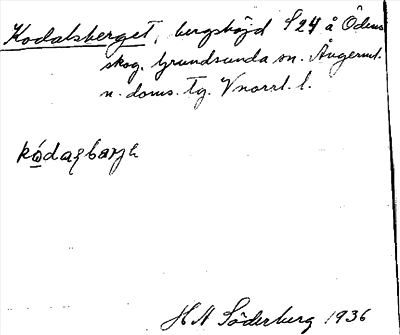 Kodalsberget, bergshöjd S 24 å Ödens
skog. Grundsunda sn. Ångerml.
n. doms. tg. Vnorrl. l.
kodaʒbarjɛ
H N Söderberg 1936